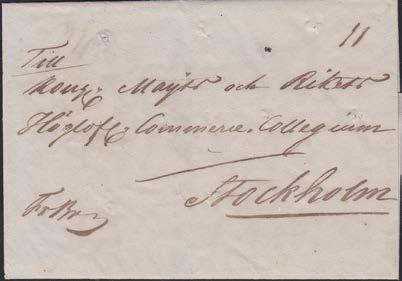 11
Till
Kong. Maijts och Rikets
Höglofl. Commerce. Collegium
Stockholm
FrBr